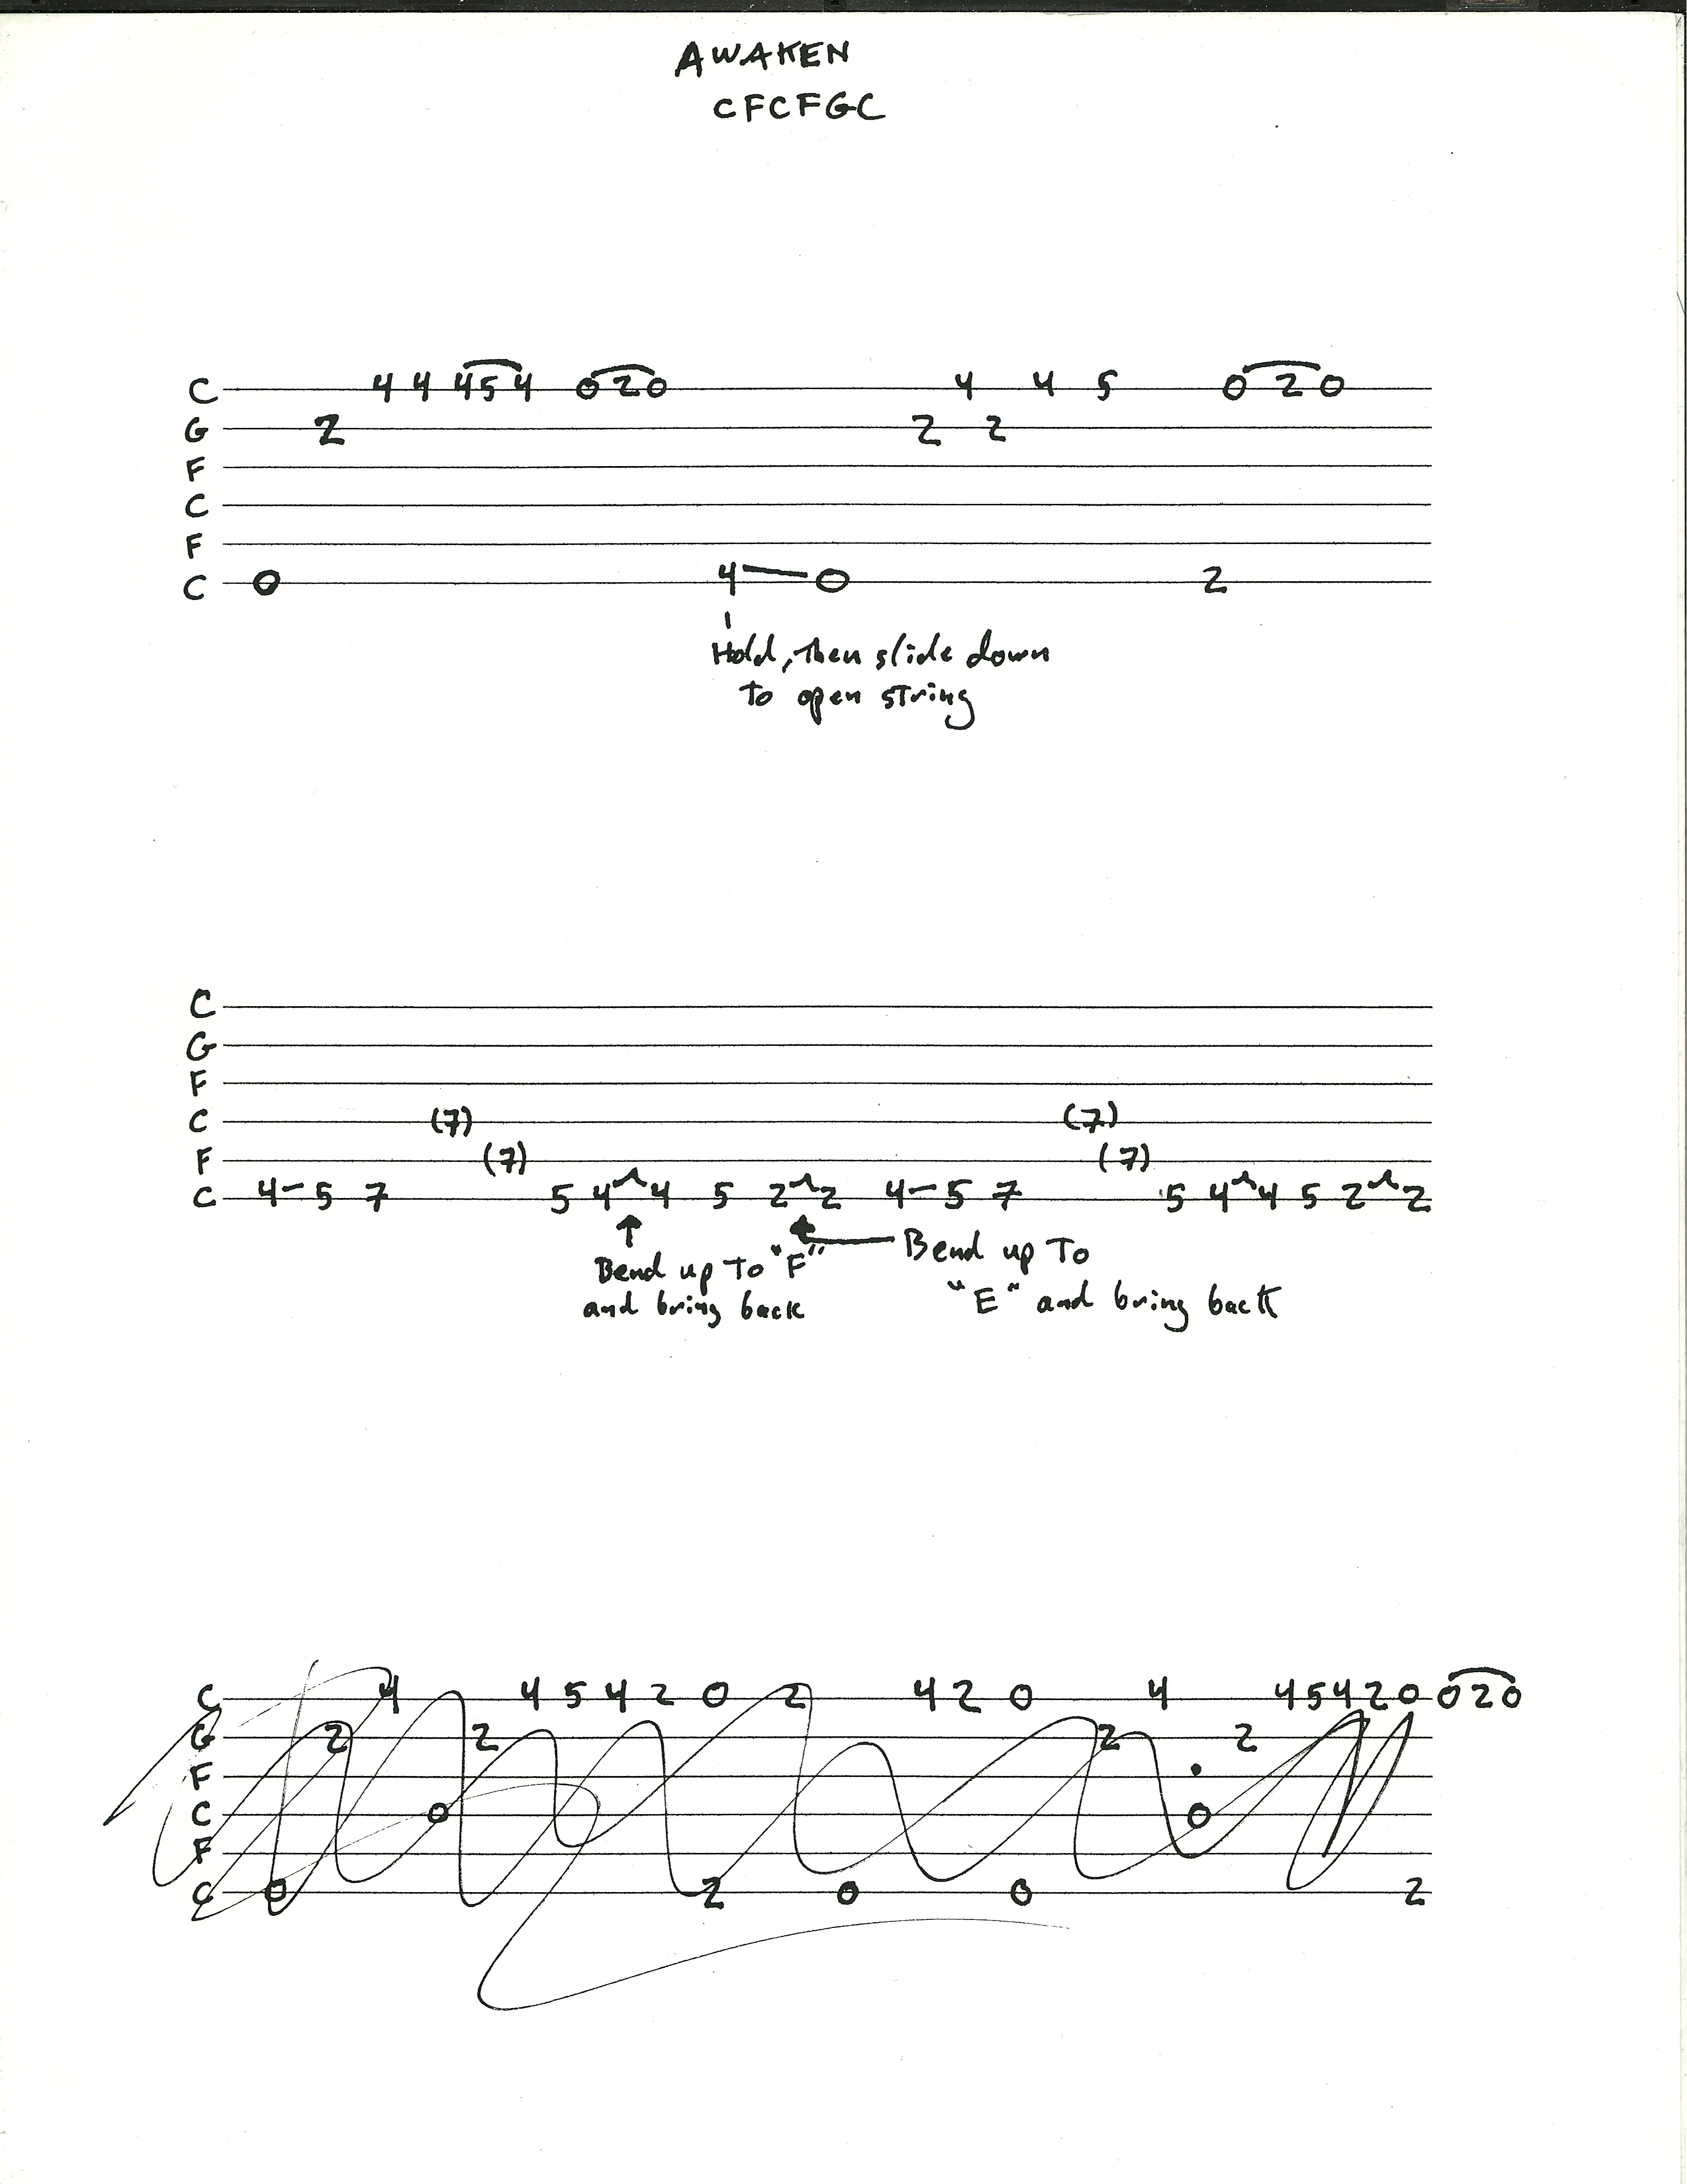 AWAKEN
CFCFGC
C 4 4 4 5 4 0 2 0 4 4 5 0 2 0
G 2 2 2
F
C
F
C 0 4 — 0 2
Hold, then slide down
to open string
C
G
F
C (7) (7)
F (7) (7)
C 4 - 5 7 5 4 ^ 4 5 2 ^ 2 4 - 5 7 5 4 ^ 4 5 2 ^ 2
Bend up to "F"
and bring back
Bend up to
"E" and bring back
C 4 4 5 4 2 0 2 4 2 0 4 4 5 4 2 0 0 2 0
G 2 2 2 2
F
C 0 0
F
C 0 2 0 0 2